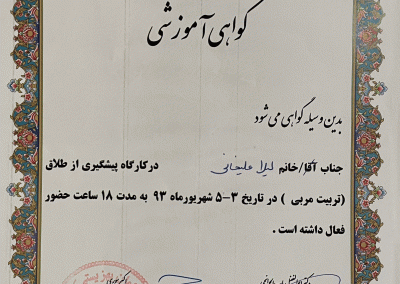 گواهی آموزشی
بدین وسیله گواهی می شود
جناب آقا/خانم لیلا علیخانی درکارگاه پیشگیری از طلاق
(تربیت مربی ) در تاریخ ۳-۵ شهریورماه ۹۳ به مدت ۱۸ ساعت حضور
فعال داشته است .